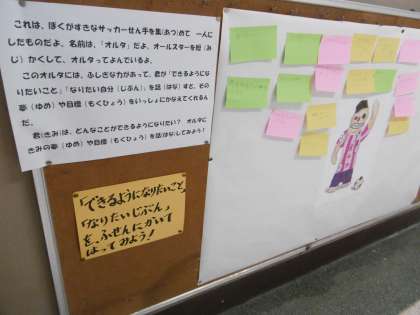 これは、ぼくがすきなサッカーせん手を集（あつ）めて 一人に
したものだよ。名前は、「オルタ」だよ。オールスターを短（み
じ）かくして、オルタってよんでいるよ。
このオルタには、ふしぎな力があって、君が「できるようにな
りたいこと」「なりたい自分（じぶん）」を話（はな）すと、その
夢（ゆめ）や目標（もくひょう）をいっしょにかなえてくれるん
だ。
君（きみ）は、どんなことができるようになりたい？ オルタに
きみの夢（ゆめ）や目標（もくひょう）を話（はな）してみよう！
「できるようになりたいこと」
「なりたいじぶん」
を、ふせんにかいて
はってみよう！